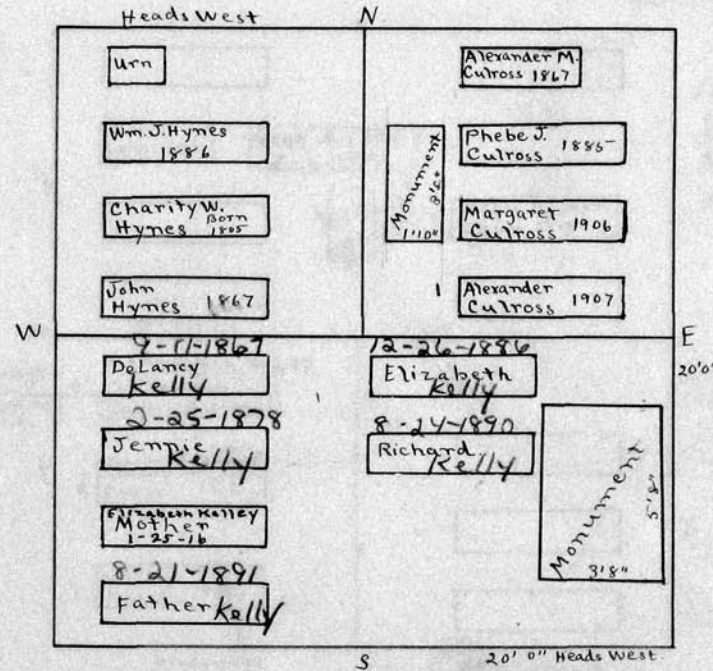 Heads West
N
Urn
Wm. J. Hynes
1886
Charity W.
Hynes Born
1805
John
Hynes 1867
Alexander M.
Culross 1867
Phebe J.
Culross 1885
Monument
1'10"
Margaret
Culross 1906
Alexander
Culross 1907
W
E
20'0"
9-11-1867
DeLancy
Kelly
2-25-1878
Jennie
Kelly
Elizabeth Kelley
Mother
1-25-16
8-21-1891
Father Kelly
12-26-1886
Elizabeth
Kelly
8-24-1890
Richard
Kelly
Monument
5'8"
3'8"
S
20' 0" Heads West